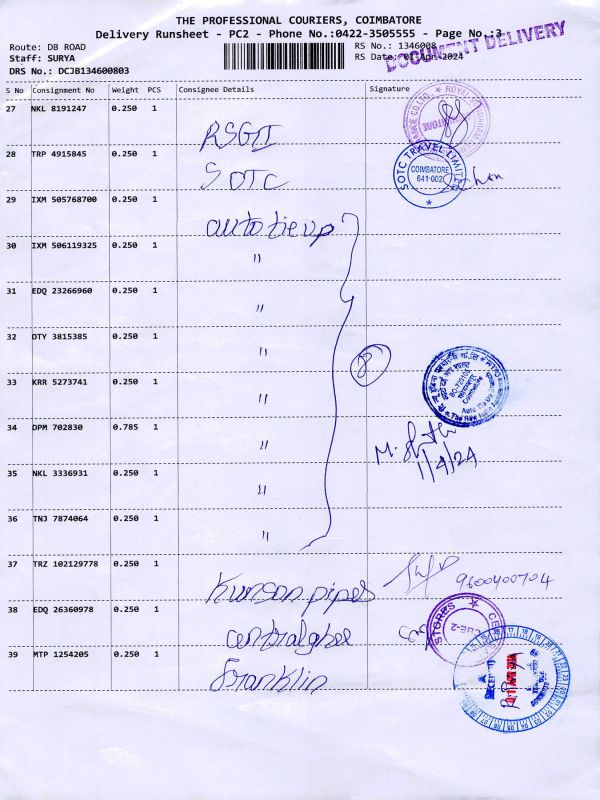 THE PROFESSIONAL COURIERS, COIMBATORE
Delivery Runsheet - PC2 - Phone No.:0422-3505555 - Page No.:3
Route: DB ROAD
RS No.: 1346008
DOCUMENT DELIVERY
Staff: SURYA
RS Date: 01-Apr-2024
DRS No.: DCJB134600803
S No Consignment No Weight PCS Consignee Details Signature
27 NKL 8191247 0.250 1
RSGI
28 TRP 4915845 0.250 1
SOTC
SOTC TRAVEL LIMITED
COIMBATORE
641-002
29 IXM 505768700 0.250 1
auto tie up
30 IXM 506119325 0.250 1
"
31 EDQ 23266960 0.250 1
"
32 OTY 3815385 0.250 1
"
8
33 KRR 5273741 0.250 1
"
34 DPM 702830 0.785 1
"
1/4/24
35 NKL 3336931 0.250 1
"
36 TNJ 7874064 0.250 1
"
37 TRZ 102129778 0.250 1
Kunson pipes
9600400704
38 EDQ 26360978 0.250 1
STORES
39 MTP 1254205 0.250 1
Franklin